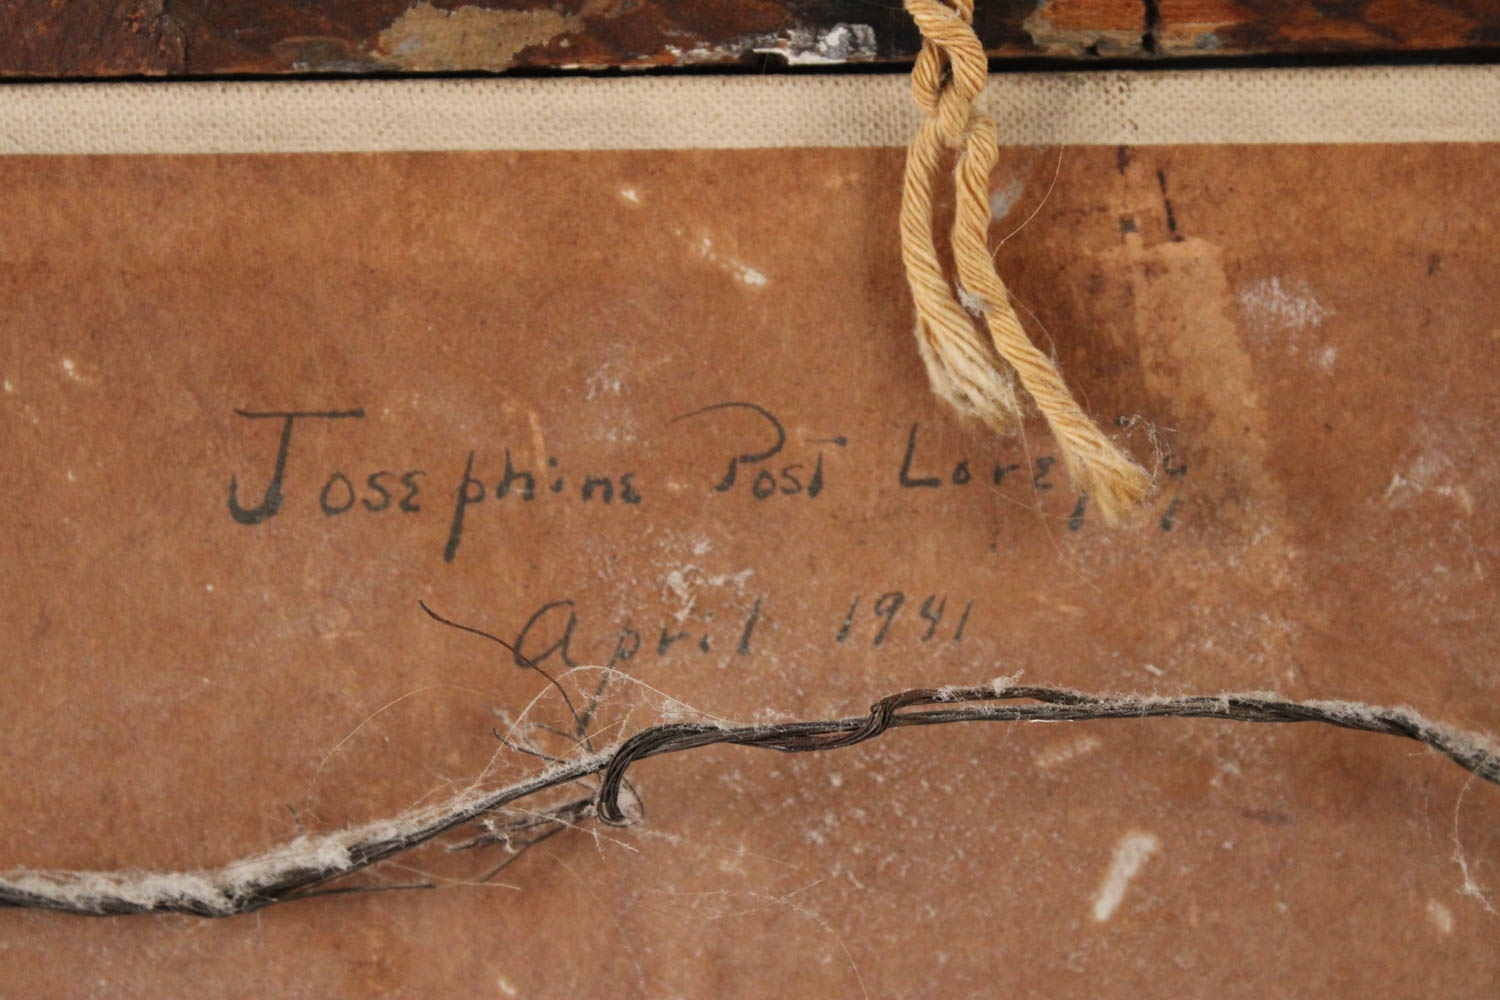 Josephine Post
April 1941